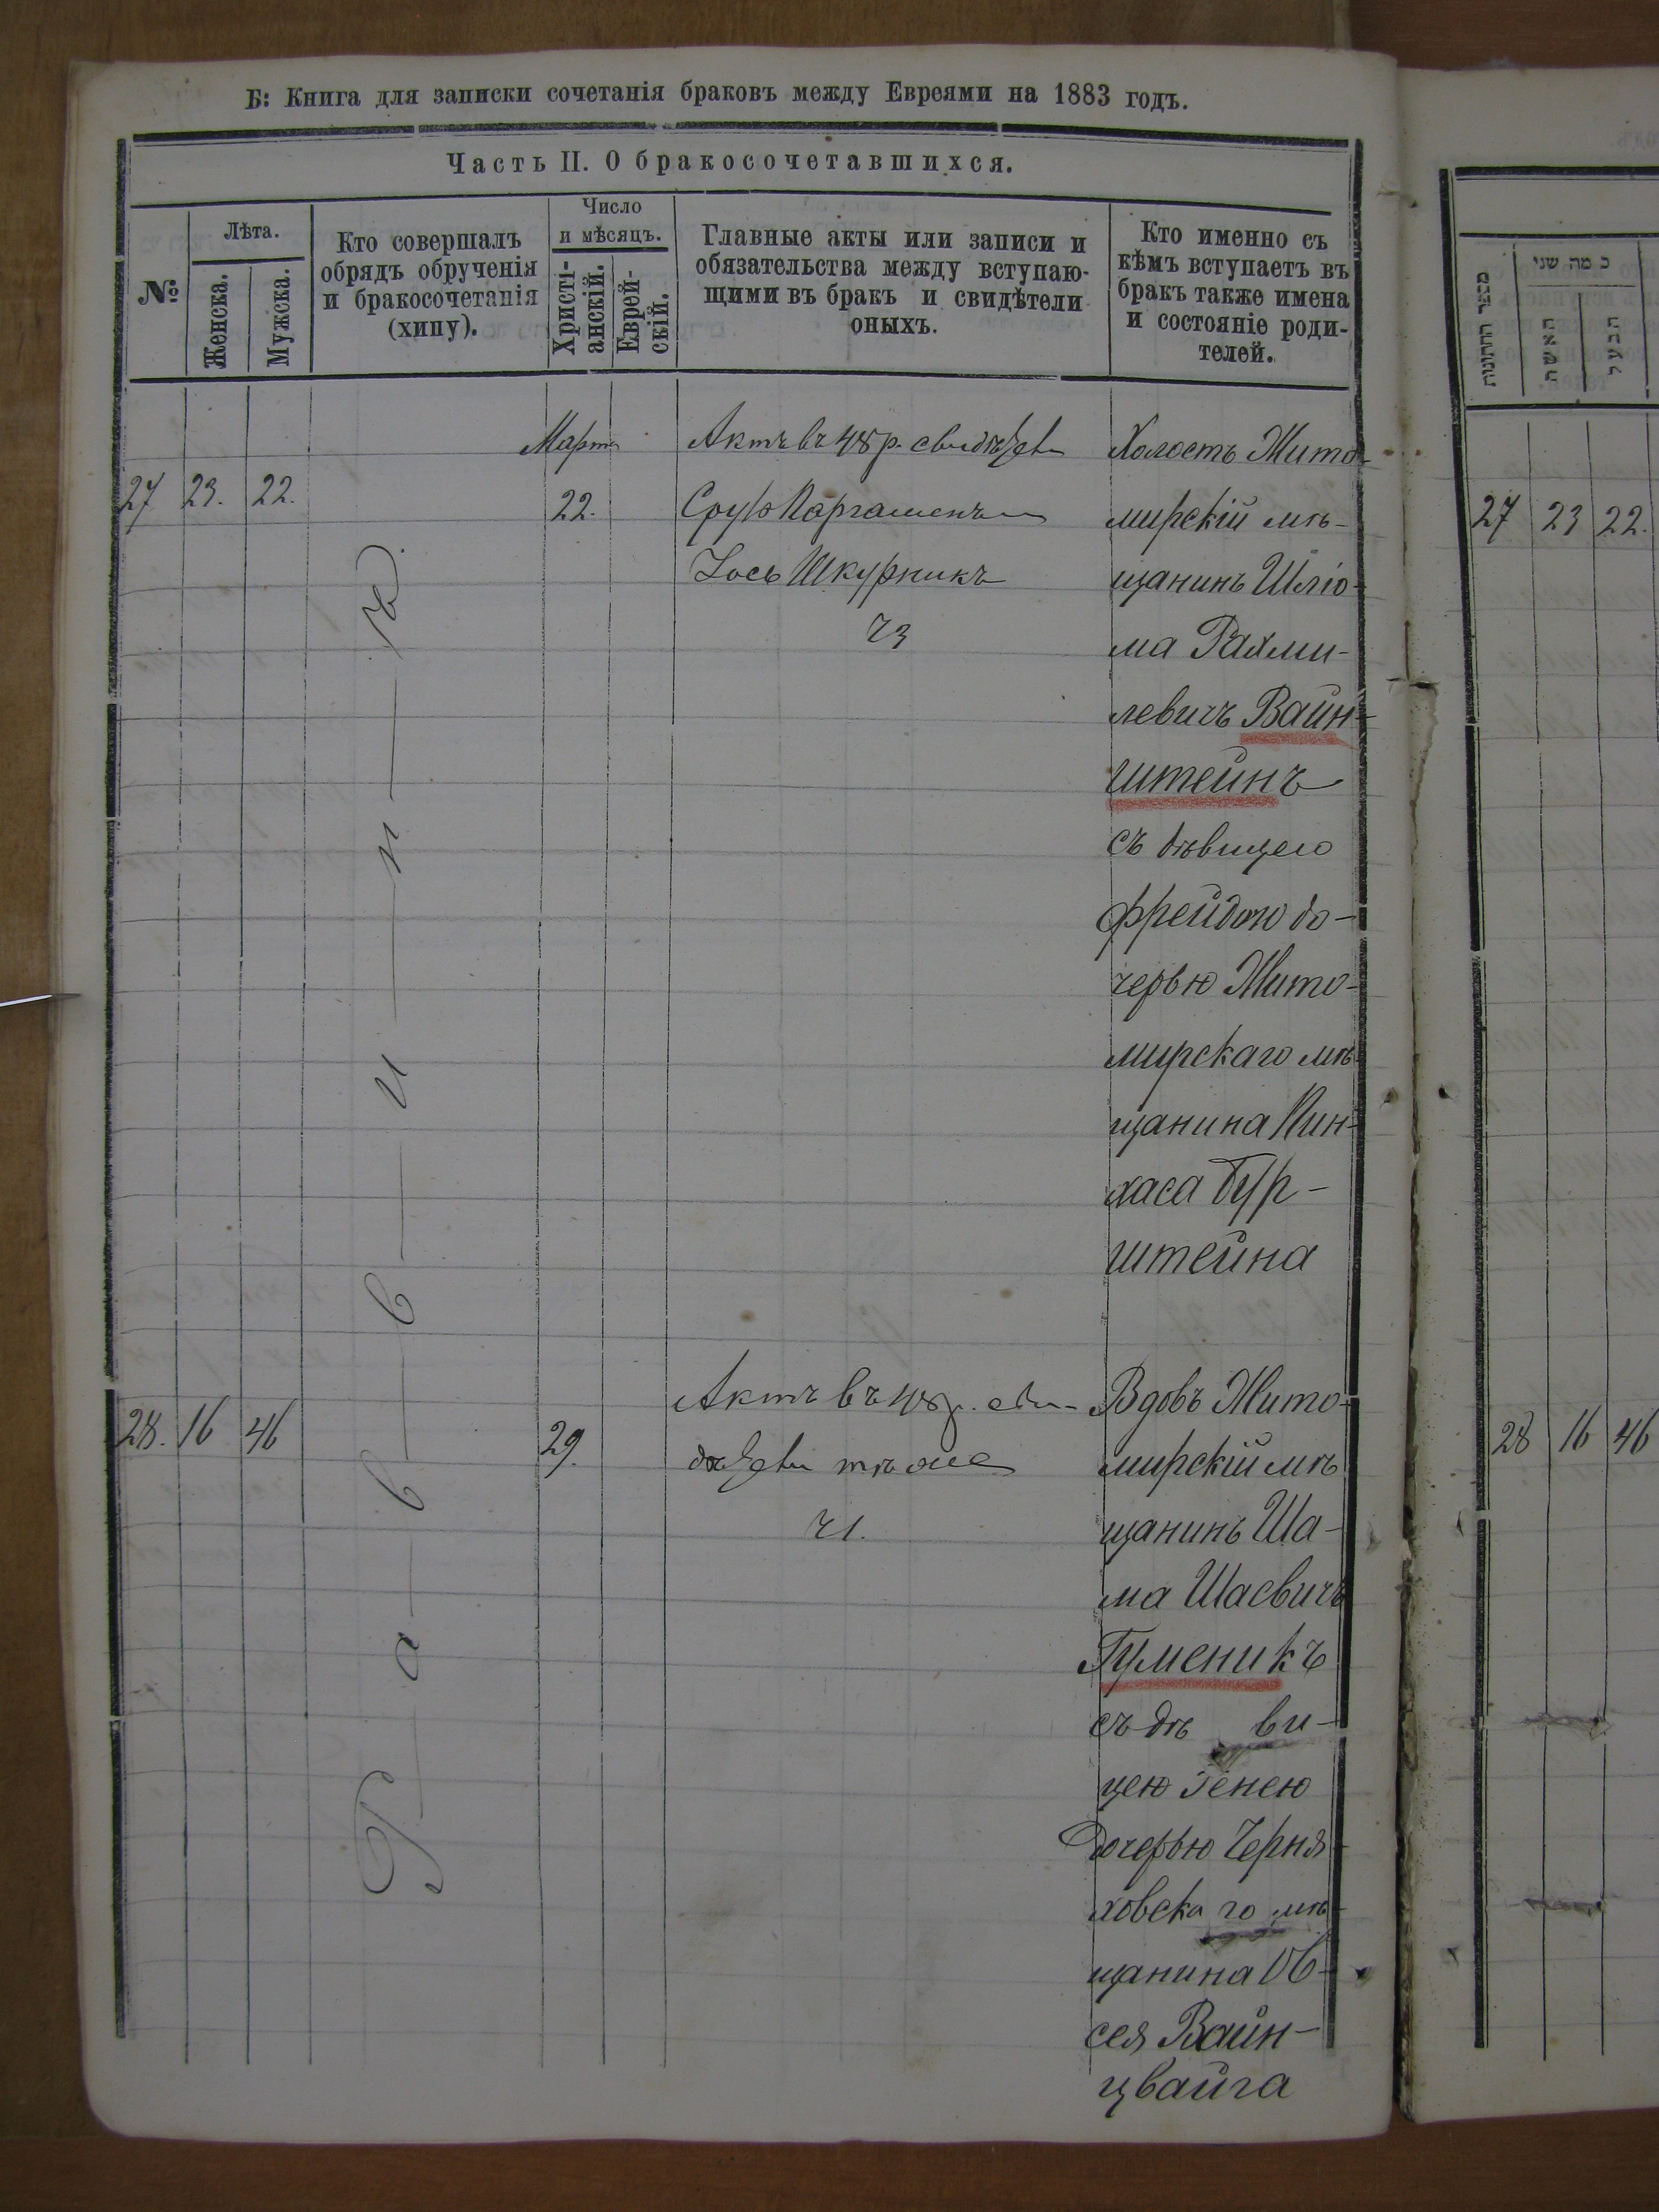 Б: Книга для записки сочетанія браковъ между Евреями на 1883 годъ.
Часть II. О бракосочетавшихся.
№
Лѣта.
Женска.
Мужска.
Кто совершалъ
обрядъ обрученія
и бракосочетанія
(хипу).
Число
и мѣсяцъ.
Христі-
анскій.
Еврей-
скій.
Главные акты или записи и
обязательства между вступаю-
щими въ бракъ и свидѣтели
оныхъ.
Кто именно съ
кѣмъ вступаетъ въ
бракъ также имена
и состояніе роди-
телей.
Раввинъ
27 23. 22.
Мартъ
22.
Актъ въ 48 р. свидѣтели
Сруль
Іось Шкурникъ
Холостъ Жито-
мирскій мѣ-
щанинъ Шліо-
ма Рахми-
левичъ Вайн-
штейнъ
съ дѣвицею
Фрейдою до-
черью Жито-
мирскаго мѣ-
щанина Пин-
хаса Бур-
штейна
28. 16 46
29.
Актъ въ 48 р. сви-
дѣтели тѣ же
Вдовъ Жито-
мирскій мѣ
щанинъ Ша-
ма Шаевичъ
Гуменикъ
съ дѣ ви-
цею Генею
дочерью Черня-
ховска го мѣ-
щанина Ов-
сея Вайн-
цвайга
מספר החתונות
כמה שני
האשה
הבעל
27 23 22.
28 16 46